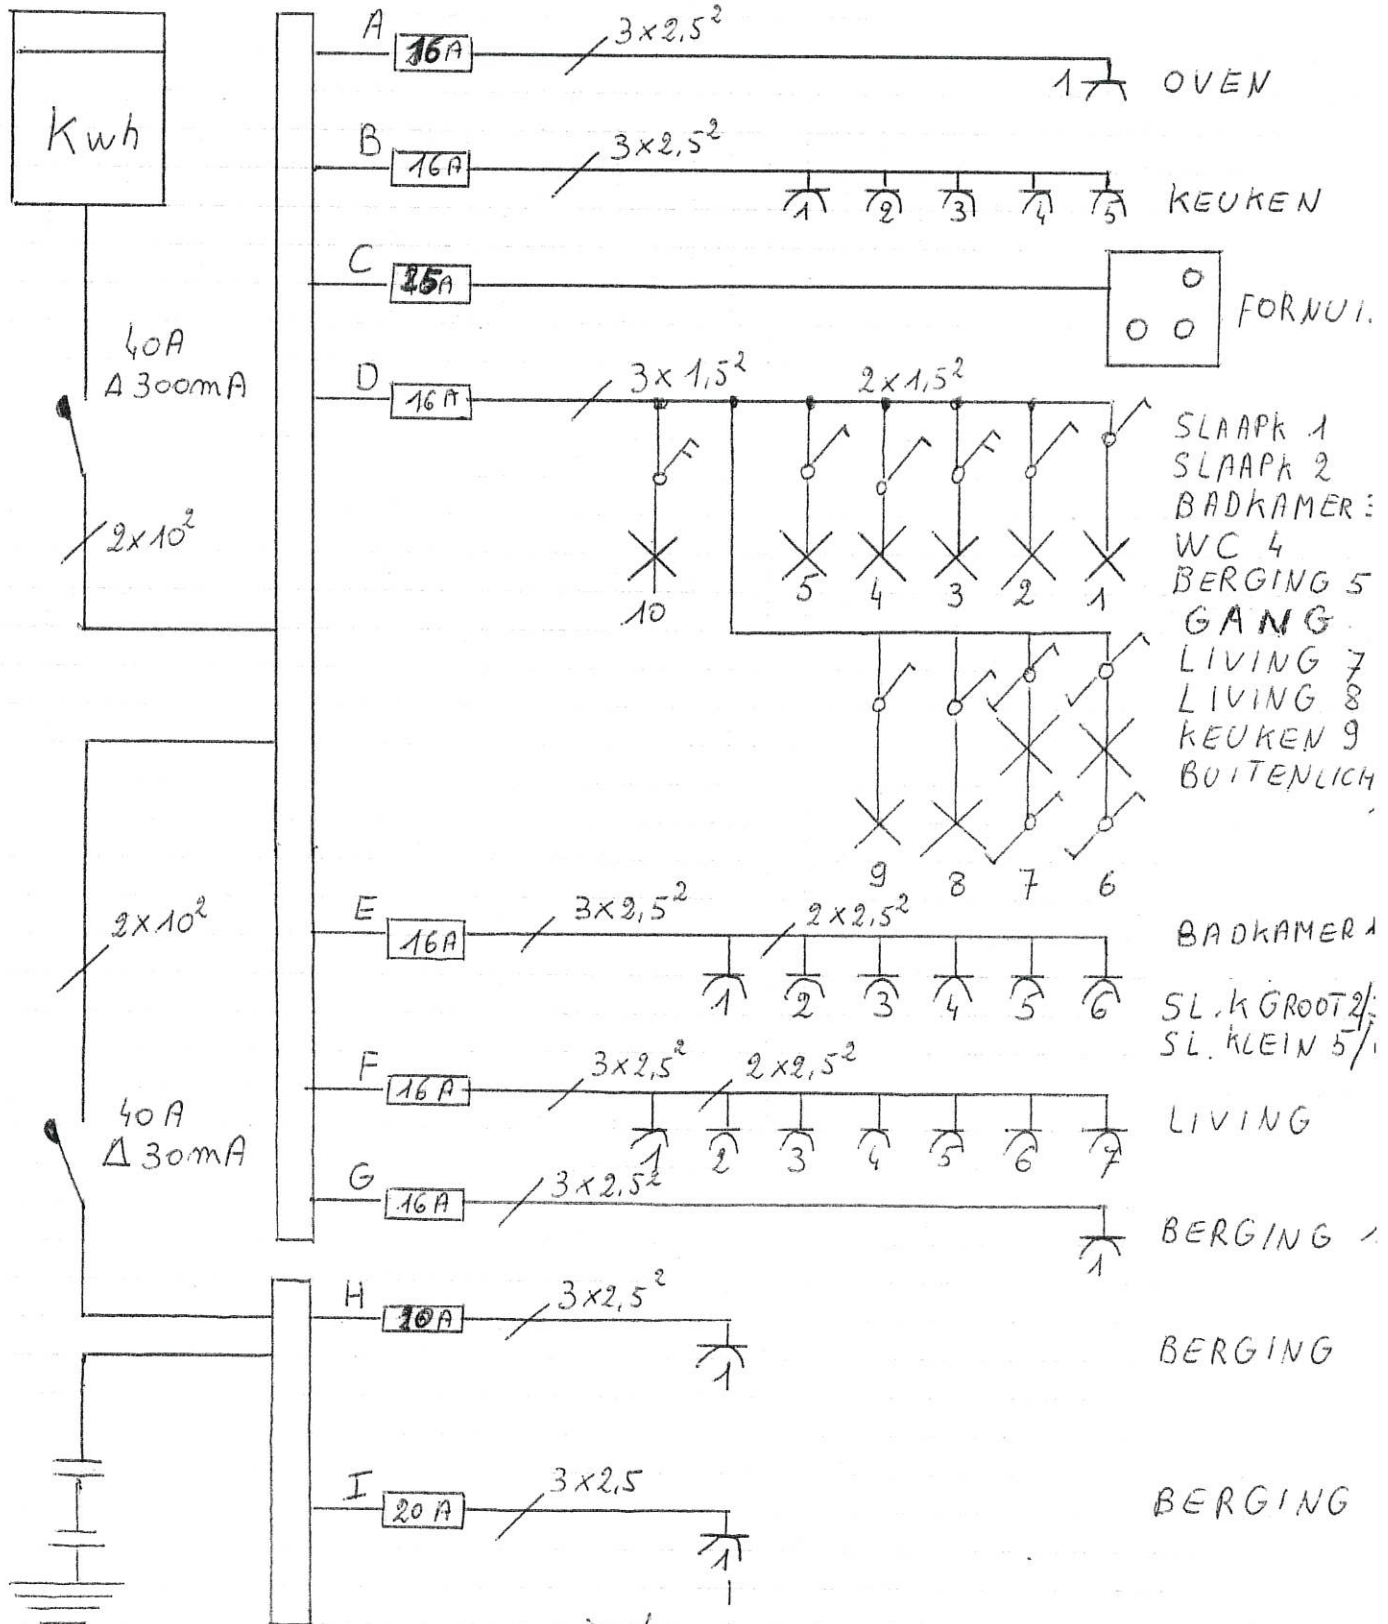 Kwh
40A
Δ300mA
2x10²
2x10²
40A
Δ30mA
A 16A 3x2,5²
1 OVEN
B 16A 3x2,5²
1 2 3 4 5 KEUKEN
C 25A
FORNUI
D 16A 3x1,5² 2x1,5²
SLAAPK 1
SLAAPK 2
BADKAMER
WC 4
BERGING 5
GANG
LIVING 7
LIVING 8
KEUKEN 9
BUITENLICH
10 5 4 3 2 1
9 8 7 6
E 16A 3x2,5² 2x2,5²
BADKAMER 1
1 2 3 4 5 6
SL.K GROOT 2/
SL. KLEIN 5/
F 16A 3x2,5² 2x2,5²
1 2 3 4 5 6 7 LIVING
G 16A 3x2,5²
1 BERGING 1
H 3x2,5²
1 BERGING
I 20A 3x2,5
1 BERGING